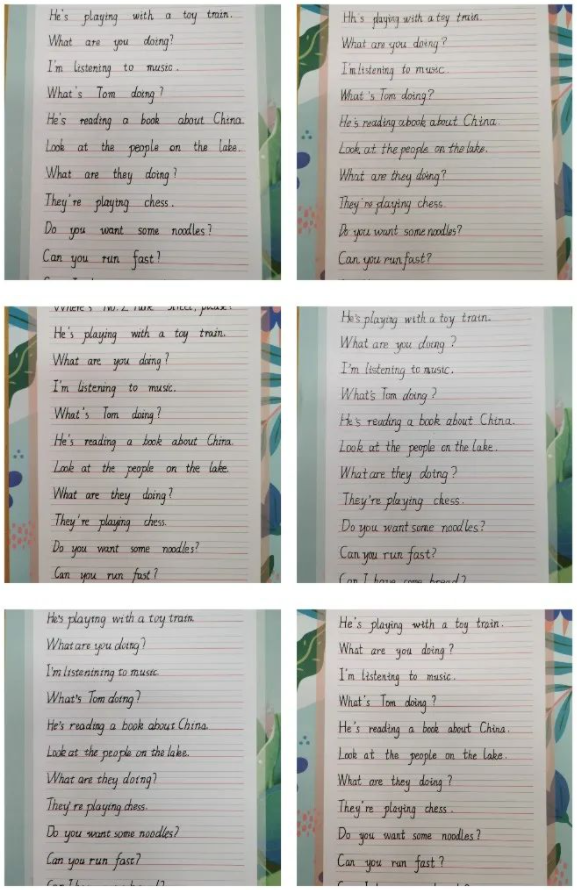 He's playing with a toy train.
What are you doing?
I'm listening to music.
What's Tom doing?
He's reading a book about China.
Look at the people on the lake.
What are they doing?
They're playing chess.
Do you want some noodles?
Can you run fast?
Hh's playing with a toy train.
What are you doing?
I'm listening to music.
What's Tom doing?
He's reading a book about China.
Look at the people on the lake.
What are they doing?
They're playing chess.
Do you want some noodles?
Can you run fast?
Where's No. 2 Park Street, please?
He's playing with a toy train.
What are you doing?
I'm listening to music.
What's Tom doing?
He's reading a book about China.
Look at the people on the lake.
What are they doing?
They're playing chess.
Do you want some noodles?
Can you run fast?
He's playing with a toy train.
What are you doing?
I'm listening to music.
What's Tom doing?
He's reading a book about China.
Look at the people on the lake.
What are they doing?
They're playing chess.
Do you want some noodles?
Can you run fast?
Can I have some bread?
He's playing with a toy train
What are you doing?
I'm listenining to music
What's Tom doing?
He's reading a book about China.
Look at the people on the lake.
What are they doing?
They're playing chess.
Do you want some noodles?
Can you run fast?
He's playing with a toy train.
What are you doing?
I'm listening to music.
What's Tom doing?
He's reading a book about China.
Look at the people on the lake.
What are they doing?
They're playing chess.
Do you want some noodles?
Can you run fast?